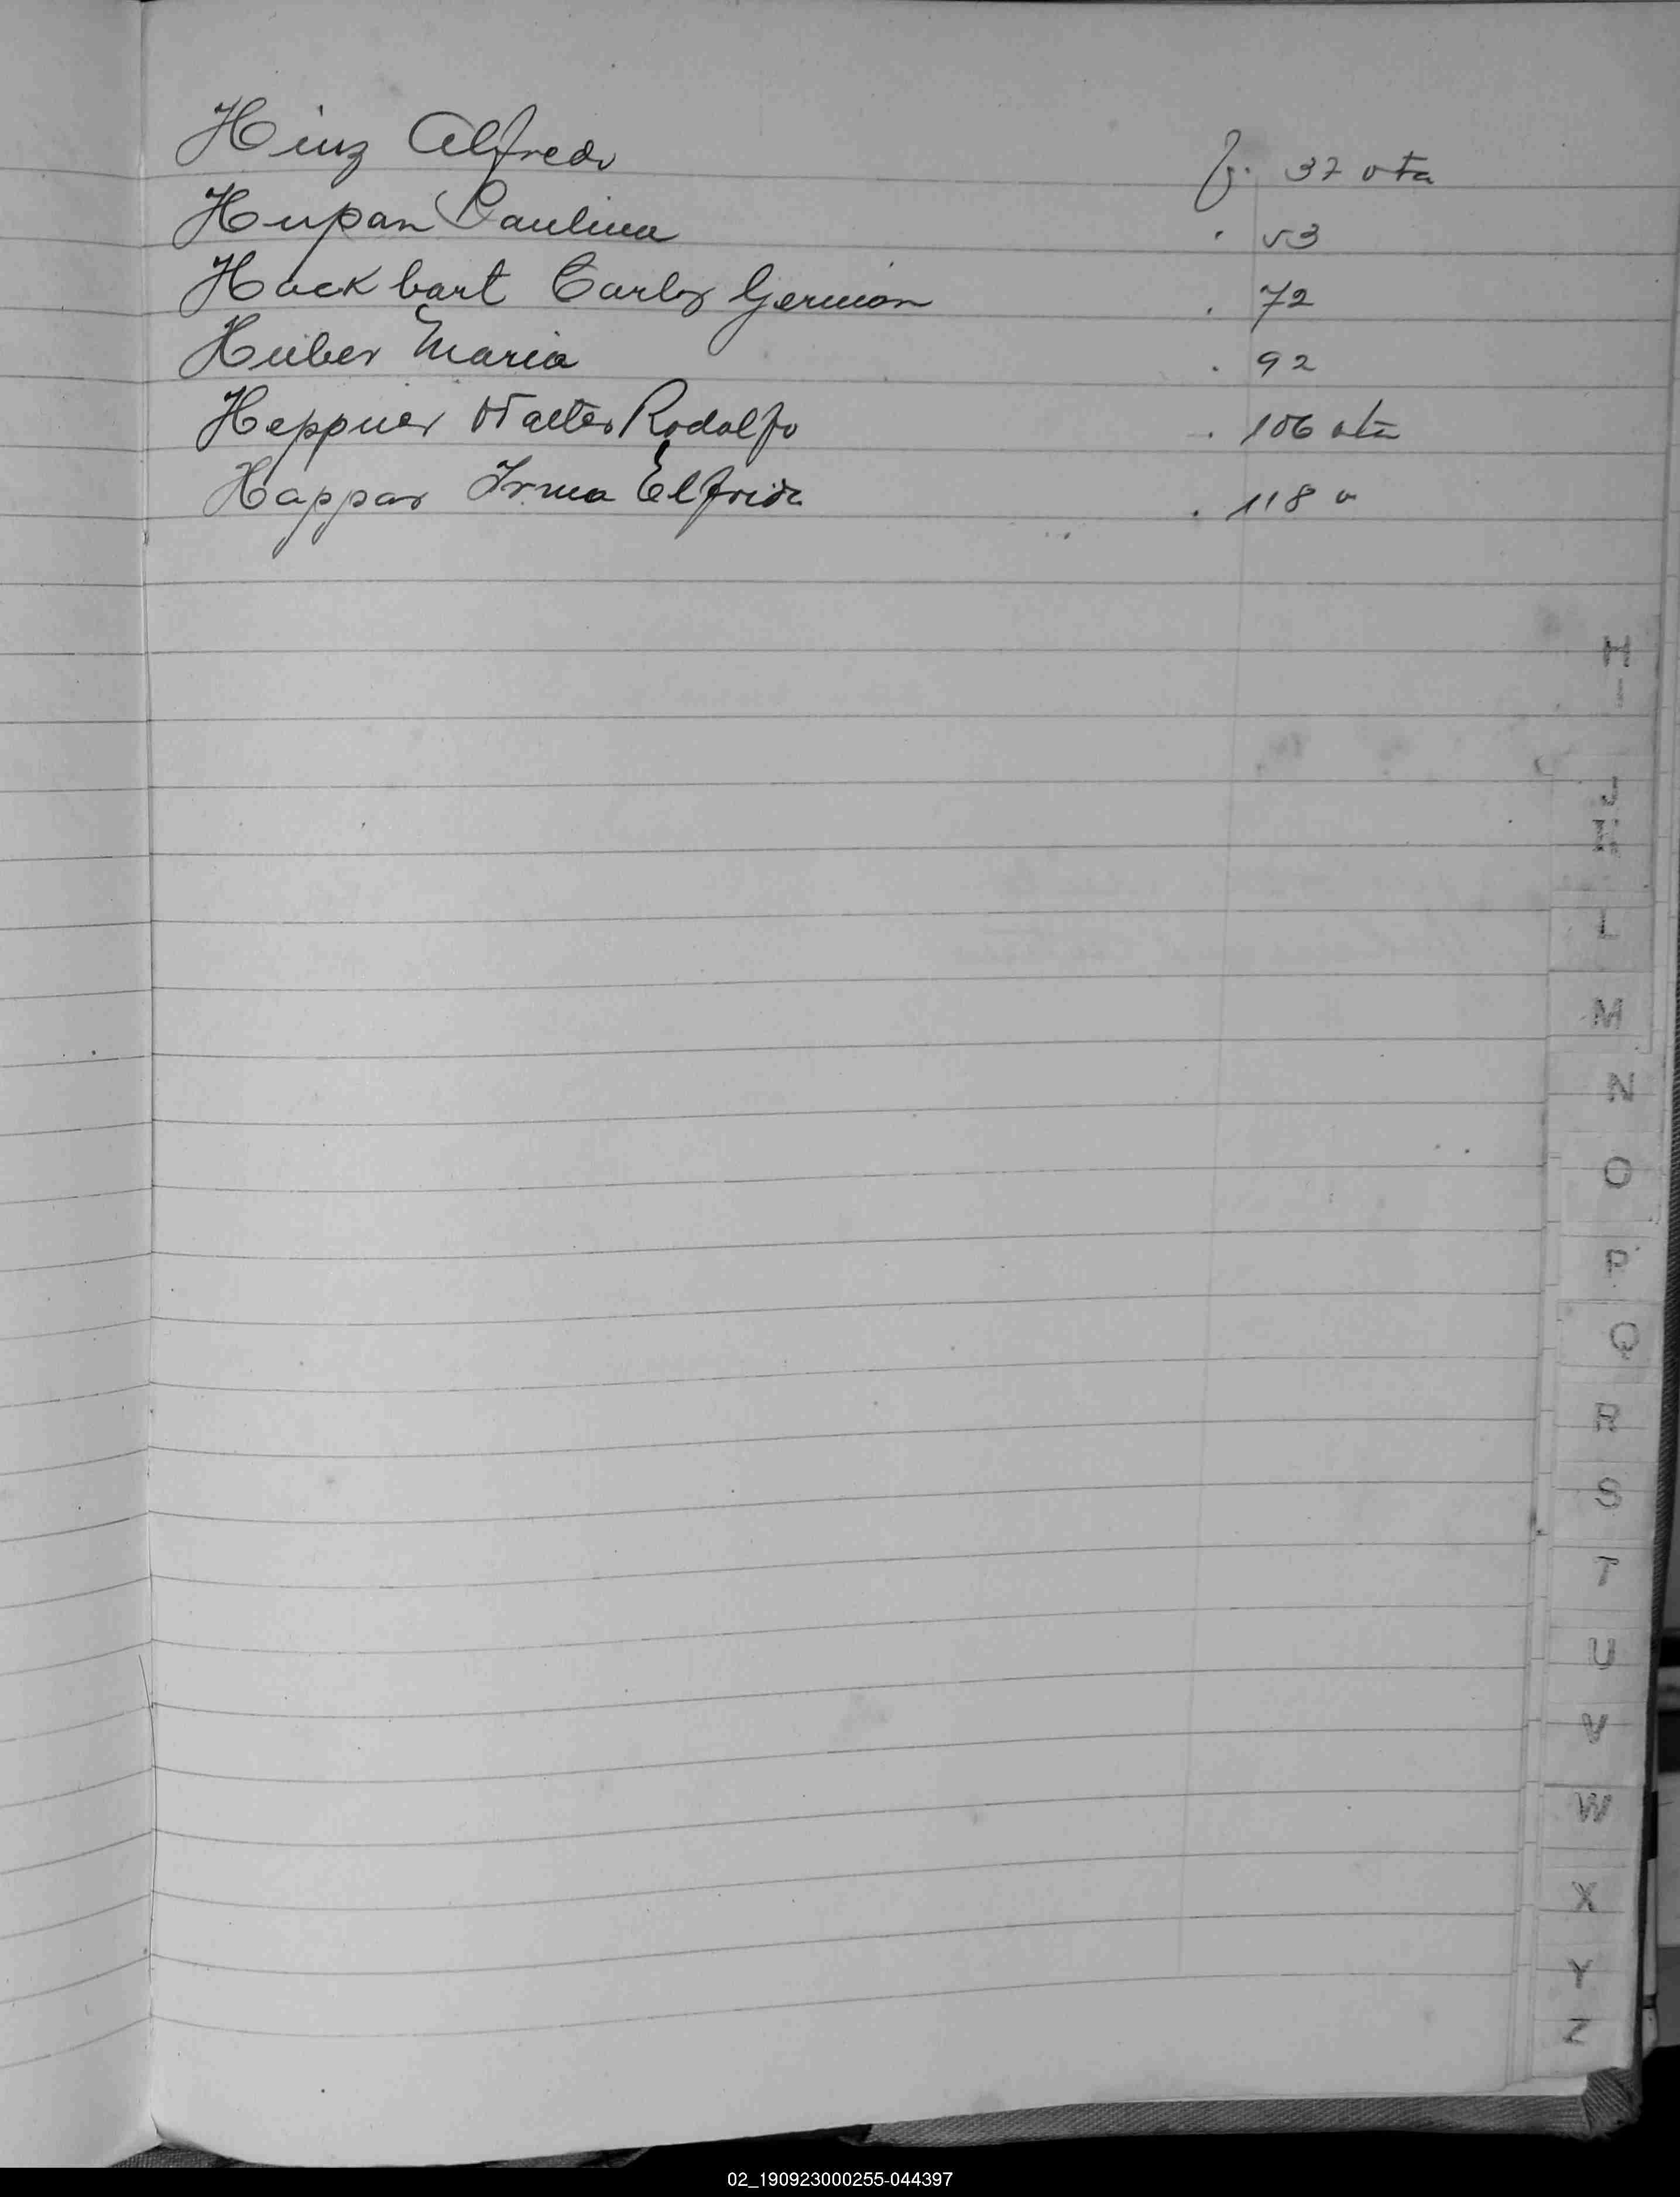 Hinz Alfredo fj. 37 vta
Hupan Paulina . 53
Hackbart Carlos Germán . 72
Huber Maria . 92
Heppner Walter Rodolfo . 106 vta
Happar Irma Elfrida . 118 v
H
I
J
K
L
M
N
O
P
Q
R
S
T
U
V
W
X
Y
Z
02_190923000255-044397